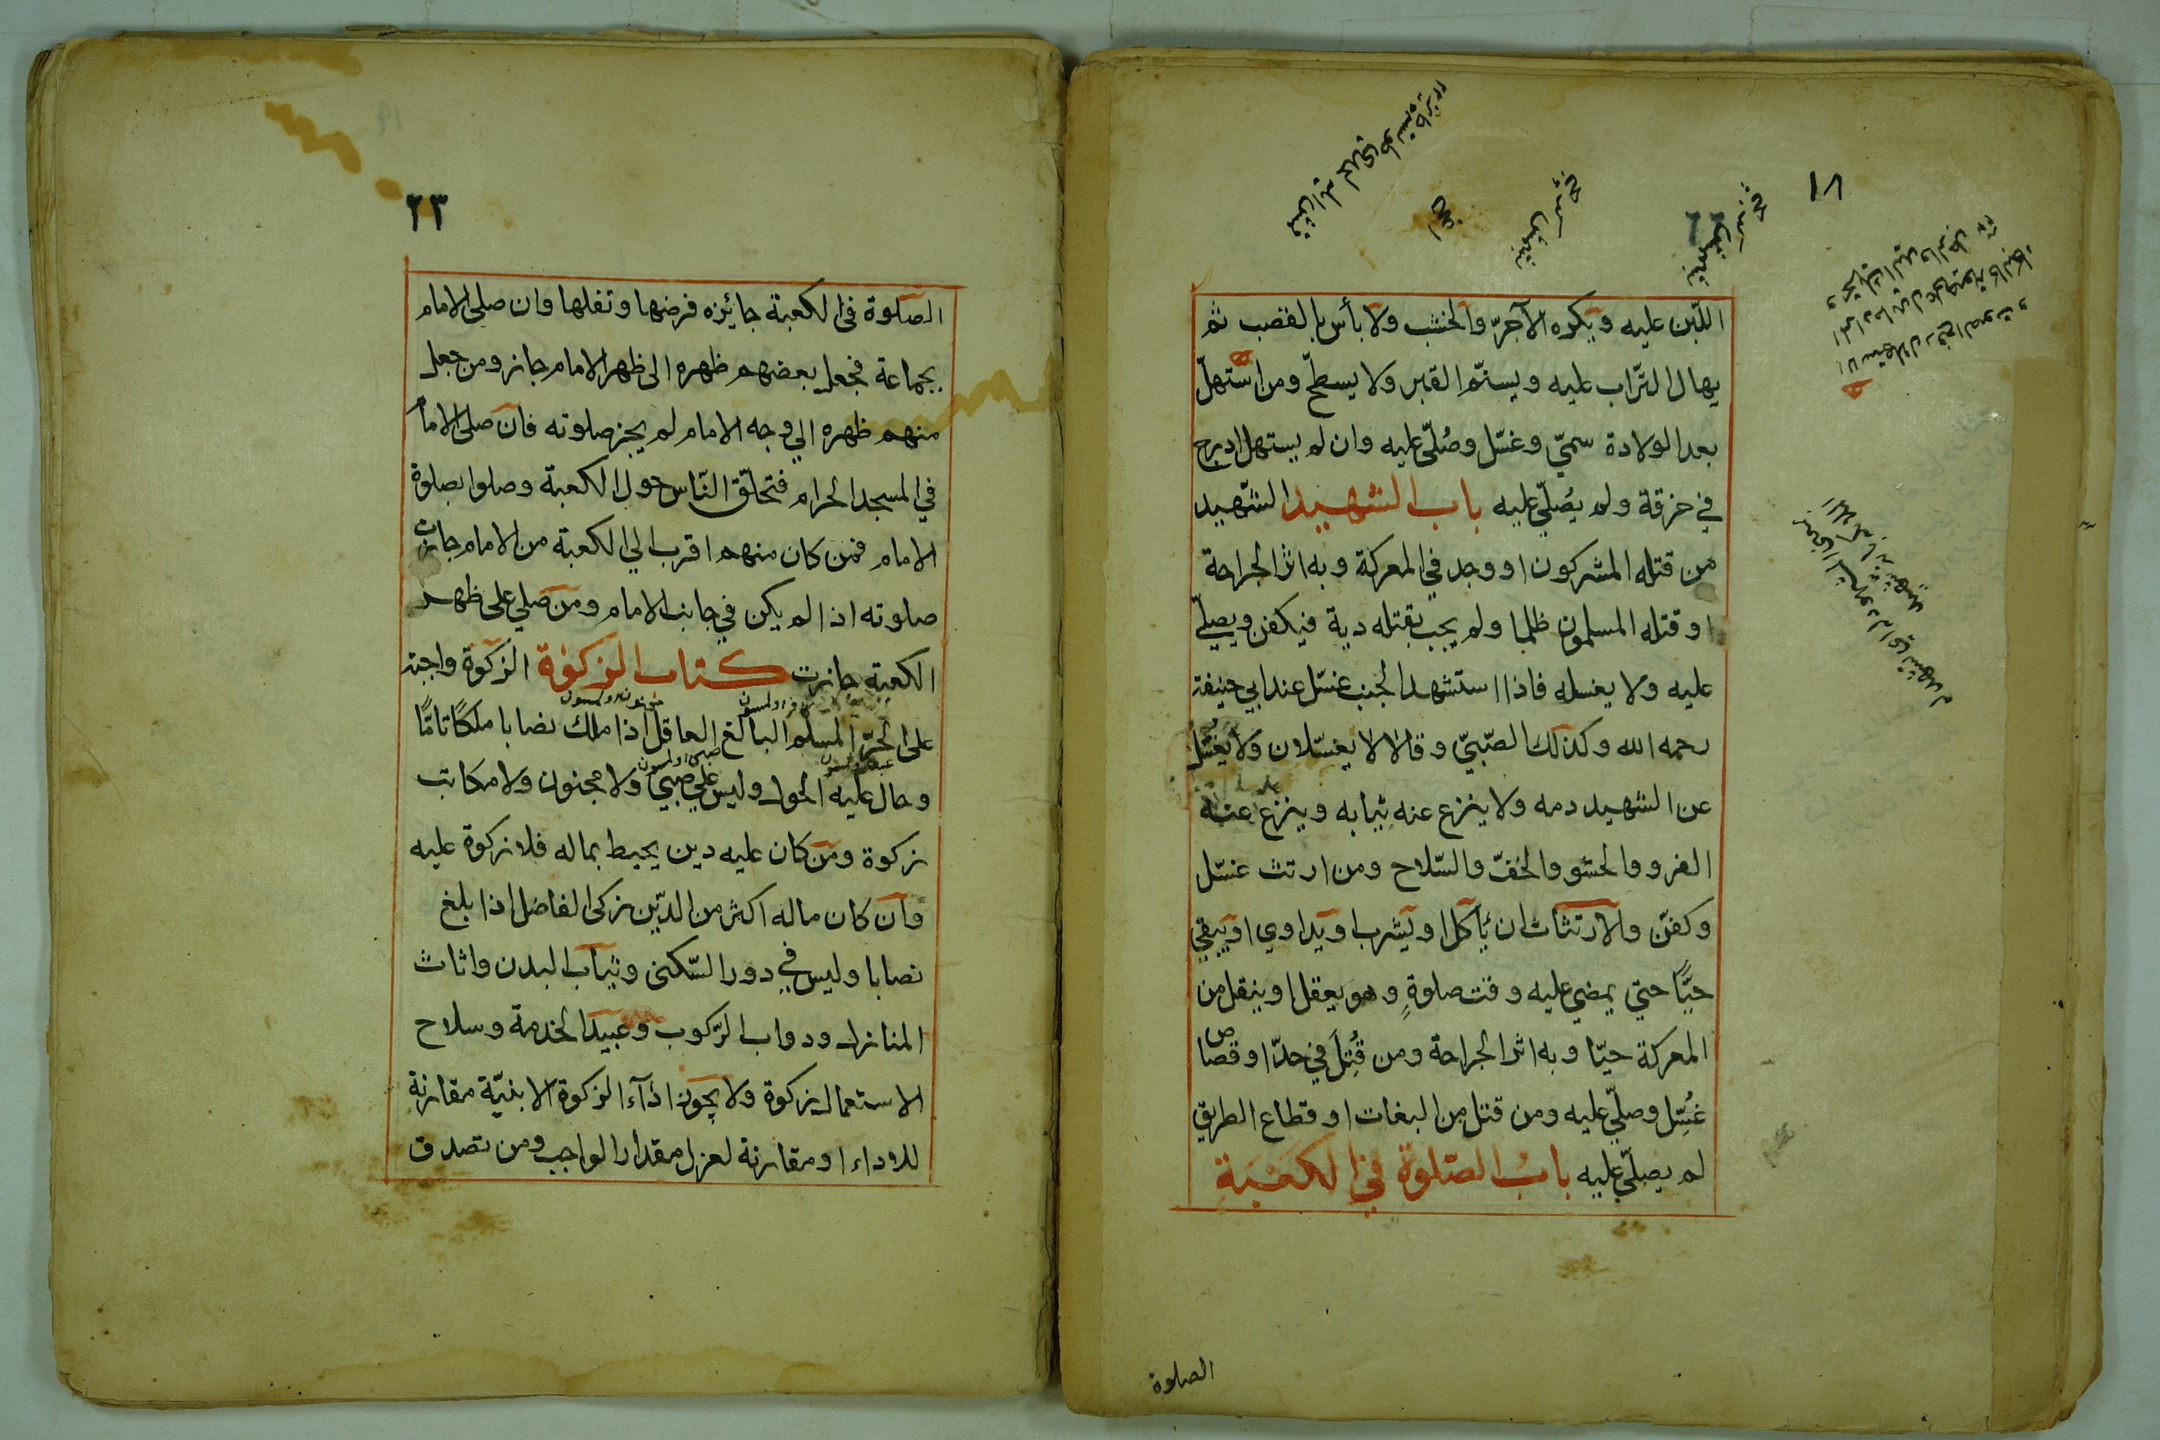 ١٨
٢٢
اللّبن عليه ويكره الآجرّ والخشب ولا بأس بالقصب ثم
يهال التّراب عليه ويسنّم القبر ولا يسطّح ومن استهلّ
بعد الولادة سمّي وغسّل وصُلّي عليه وان لم يستهل ادرج
في خرقة ولم يُصلّي عليه باب الشهيد الشّهيد
من قتله المشركون او وجد في المعركة وبه اثر الجراحة
او قتله المسلمون ظلما ولم يجب بقتله دية فيكفن ويصلّي
عليه ولا يغسله فاذا استشهد الجنب غسّل عند ابي حنيفة
رحمه الله وكذلك الصّبيّ وقالا لا يغسّلان ولا يغُسّل
عن الشهيد دمه ولا ينزع عنه ثيابه وينزع عنه
الفرو والحشو والخفّ والسّلاح ومن ارتث غسّل
وكفّن والارتثاث ان يأكل او يشرب او يداوي او يبقي
حيًّا حتي يمضي عليه وقت صلوةٍ وهو يعقل او ينقل من
المعركة حيّا وبه اثر الجراحة ومن قُتِلَ في حدّ او قصاص
غُسّل وصلّي عليه ومن قتل من البغات او قطاع الطريق
لم يصلّي عليه بابُ الصّلوة في الكعبة
الصلوة
٢٣
الصّلوة في الكعبة جائزه فرضها ونفلها وان صلى الامام
بجماعة فجعل بعضهم ظهره الى ظهر الامام جاز ومن جعل
منهم ظهره الي وجه الامام لم يجز صلوته فان صلى الامام
في المسجد الحرام فتحلّق النّاس حول الكعبة وصلوا بصلوة
الامام فمن كان منهم اقرب الي الكعبة من الامام جازت
صلوته اذا لم يكن في جانب الامام ومن صلي على ظهر
الكعبة جازت كتاب الزكوة الزكوة واجبة
على الحرّ المسلم البالغ العاقل اذا ملك نصابا ملكًا تامًّا
وحال عليه الحول وليس علي صبيّ ولا مجنون ولا مكاتب
زكوة ومن كان عليه دين يحيط بماله فلا زكوة عليه
وان كان ماله اكثر من الدّين زكى الفاضل اذا بلغ
نصابا وليس في دور السّكنى وثياب البدن واثاث
المنازل ودواب الرّكوب وعبيد الخدمة وسلاح
الاستعمال زكوة ولا يجوز اداء الزكوة الا بنيّة مقارنة
للاداء او مقارنة لعزل مقدار الواجب ومن تصدق